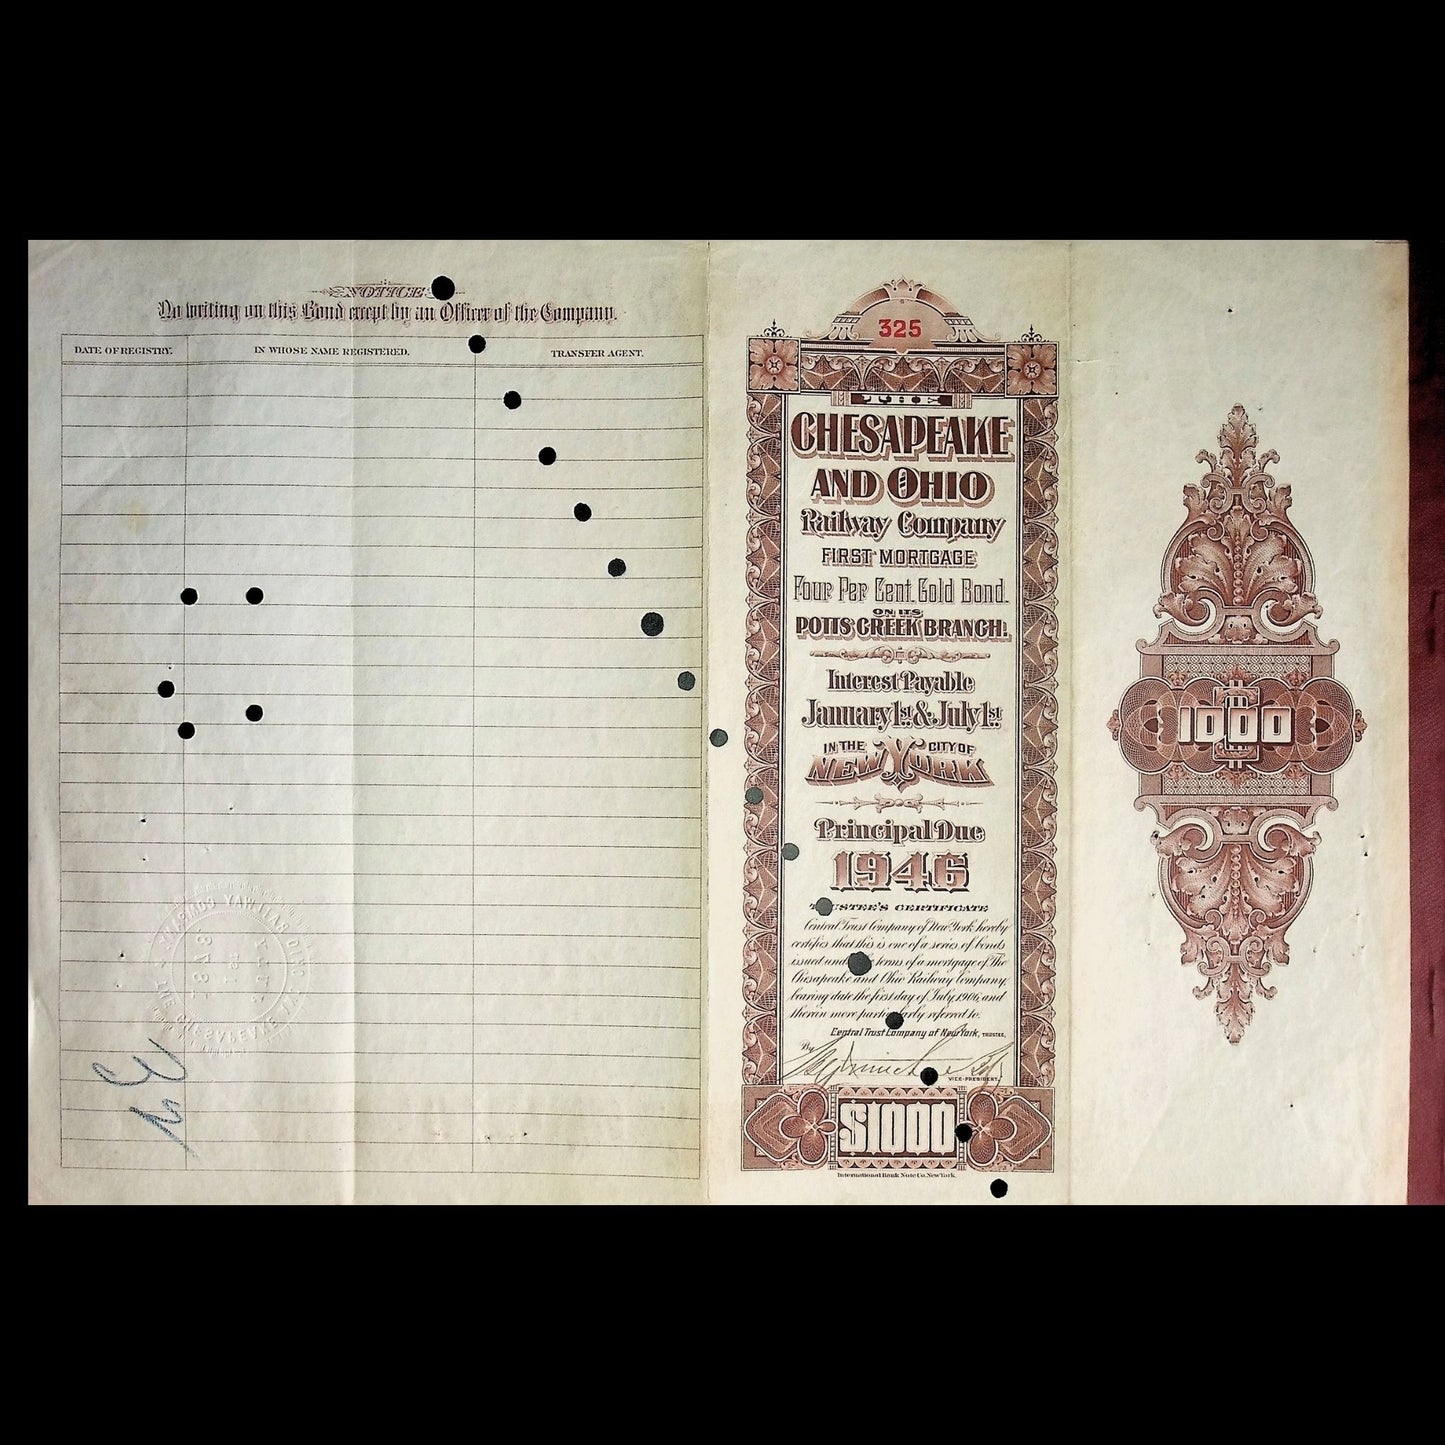 NOTICE
No writing on this Bond except by an Officer of the Company.
DATE OF REGISTRY.
IN WHOSE NAME REGISTERED.
TRANSFER AGENT.
325
THE
CHESAPEAKE
AND OHIO
Railway Company
FIRST MORTGAGE
Four Per Cent. Gold Bond.
ON ITS
POTTS CREEK BRANCH.
Interest Payable
January 1st & July 1st
IN THE CITY OF
NEW YORK
Principal Due
1946
TRUSTEE'S CERTIFICATE
Central Trust Company of New York hereby
certifies that this is one of a series of bonds
issued under the terms of a mortgage of The
Chesapeake and Ohio Railway Company,
bearing date the first day of July, 1906, and
therein more particularly referred to.
Central Trust Company of New York, TRUSTEE,
By
VICE-PRESIDENT.
$1000
International Bank Note Co. New York.
$
1000
THE CHESAPEAKE AND OHIO RAILWAY COMPANY
1878